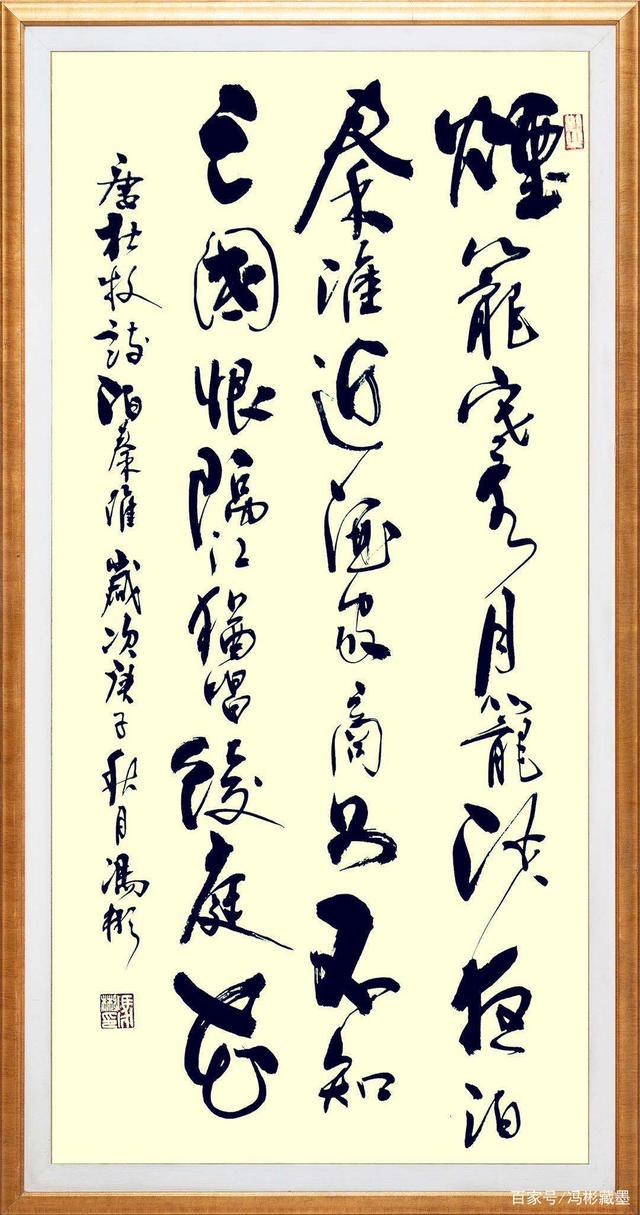 煙籠寒水月籠沙夜泊
秦淮近酒家商女不知
亡國恨隔江猶唱後庭花
唐杜牧詩泊秦淮歲次庚子秋月馮彬
百家号/冯彬藏墨